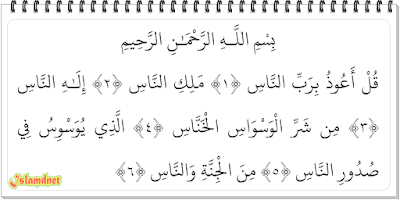 بِسْمِ اللَّـهِ الرَّحْمَـٰنِ الرَّحِيمِ
قُلْ أَعُوذُ بِرَبِّ النَّاسِ ﴿١﴾ مَلِكِ النَّاسِ ﴿٢﴾ إِلَـٰهِ النَّاسِ
﴿٣﴾ مِن شَرِّ الْوَسْوَاسِ الْخَنَّاسِ ﴿٤﴾ الَّذِي يُوَسْوِسُ فِي
صُدُورِ النَّاسِ ﴿٥﴾ مِنَ الْجِنَّةِ وَالنَّاسِ ﴿٦﴾
islamdnet